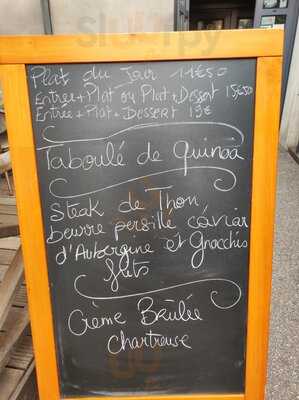 Plat du Jour 11€50
Entrée+Plat ou Plat+Dessert 15,€50
Entrée+Plat+Dessert 19€
Taboulé de Quinoa
Steak de Thon
beurre persillé caviar
d'Aubergine et Gnocchis
frits
Crème Brûlée
Chartreuse